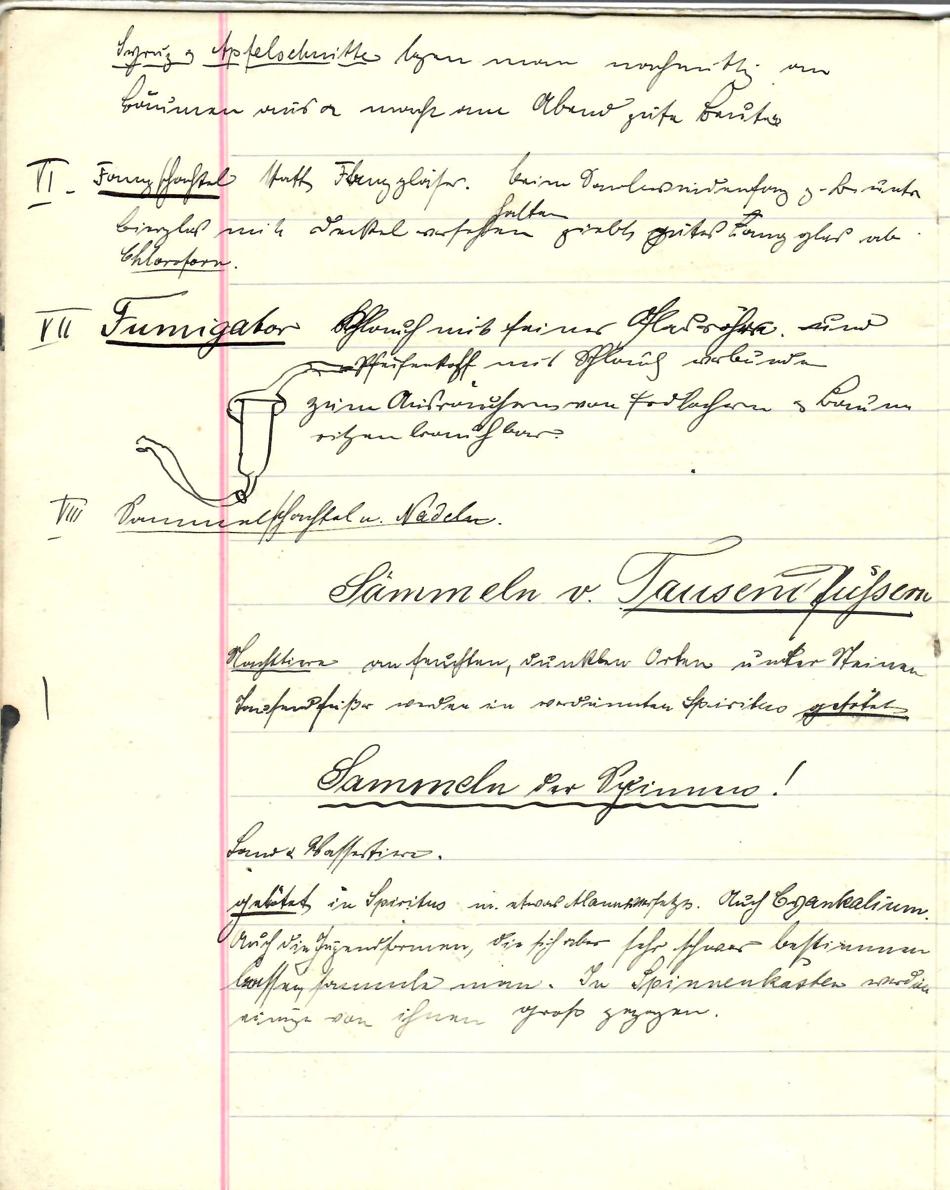 Syrup & Apfelschnitte legen man nachmittg an
Bäumen aus & macht am Abend gute Beute
VI. Fangschachtel statt Fanggläser. beim z. B. unter
halten
Bierglas mit Deckel versehen giebt gutes Fangglas ab
Chloroform.
VII Fumigator Schlauch mit feiner Glasröhre. und
Pfeifenkopf mit Schlauch verbunden
zum Ausräuchern von Erdlöchern & Baum
ritzen brauchbar.
VIII Sammelschachtel u. Nadeln.
Sammeln v. Tausendfüssern
Nachttiere an feuchten, dunklen Orten unter Steinen
Tausendfüßer werden in verdünnten Spiritus getötet
Sammeln der Spinnen!
Land & Wassertiere.
getötet in Spiritus m. etwas Alaun versetzt. Auch Cyankalium.
Auch die Jugendformen, die sich aber sehr schwer bestimmen
lassen, sammle man. In Spinnenkästen werden
einige von ihnen groß gezogen.